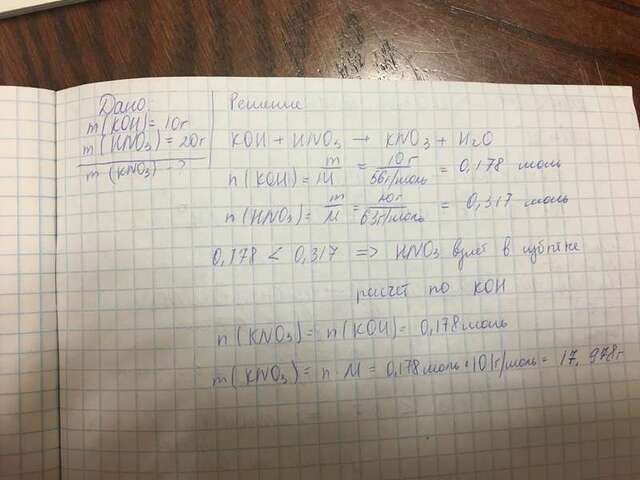 Дано
m(KOH)=10г
m(HNO₃)=20г
m(KNO₃)-?
Решение
KOH + HNO₃ → KNO₃ + H₂O
n(KOH)= m/M = 10г/56г/моль = 0,178 моль
n(HNO₃)= m/M = 20г/63г/моль = 0,317 моль
0,178 < 0,317 => HNO₃ взят в избытке
расчет по KOH
n(KNO₃)= n(KOH)= 0,178 моль
m(KNO₃)= n M = 0,178 моль·101г/моль= 17,978г